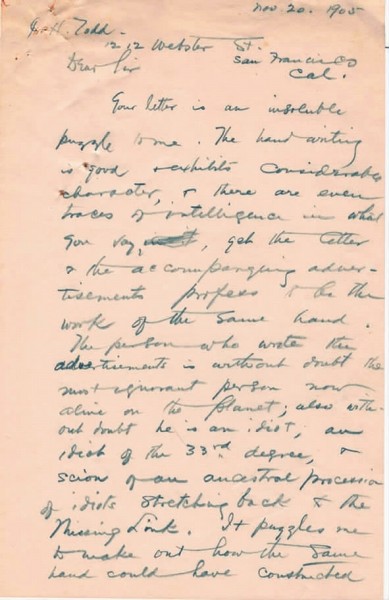 Nov. 20. 1905
J. H. Todd
1212 Webster St.
San Francisco
Cal.
Dear Sir
Your letter is an insoluble
puzzle to me. The handwriting
is good & exhibits considerable
character, & there are even
traces of intelligence in what
you say, yet the letter
& the accompanying adver-
tisements profess to be the
work of the same hand.
The person who wrote the
advertisements is without doubt the
most ignorant person now
alive on the planet; also with-
out doubt he is an idiot, an
idiot of the 33rd degree, &
scion of an ancestral procession
of idiots stretching back to the
Missing Link. It puzzles me
to make out how the same
hand could have constructed